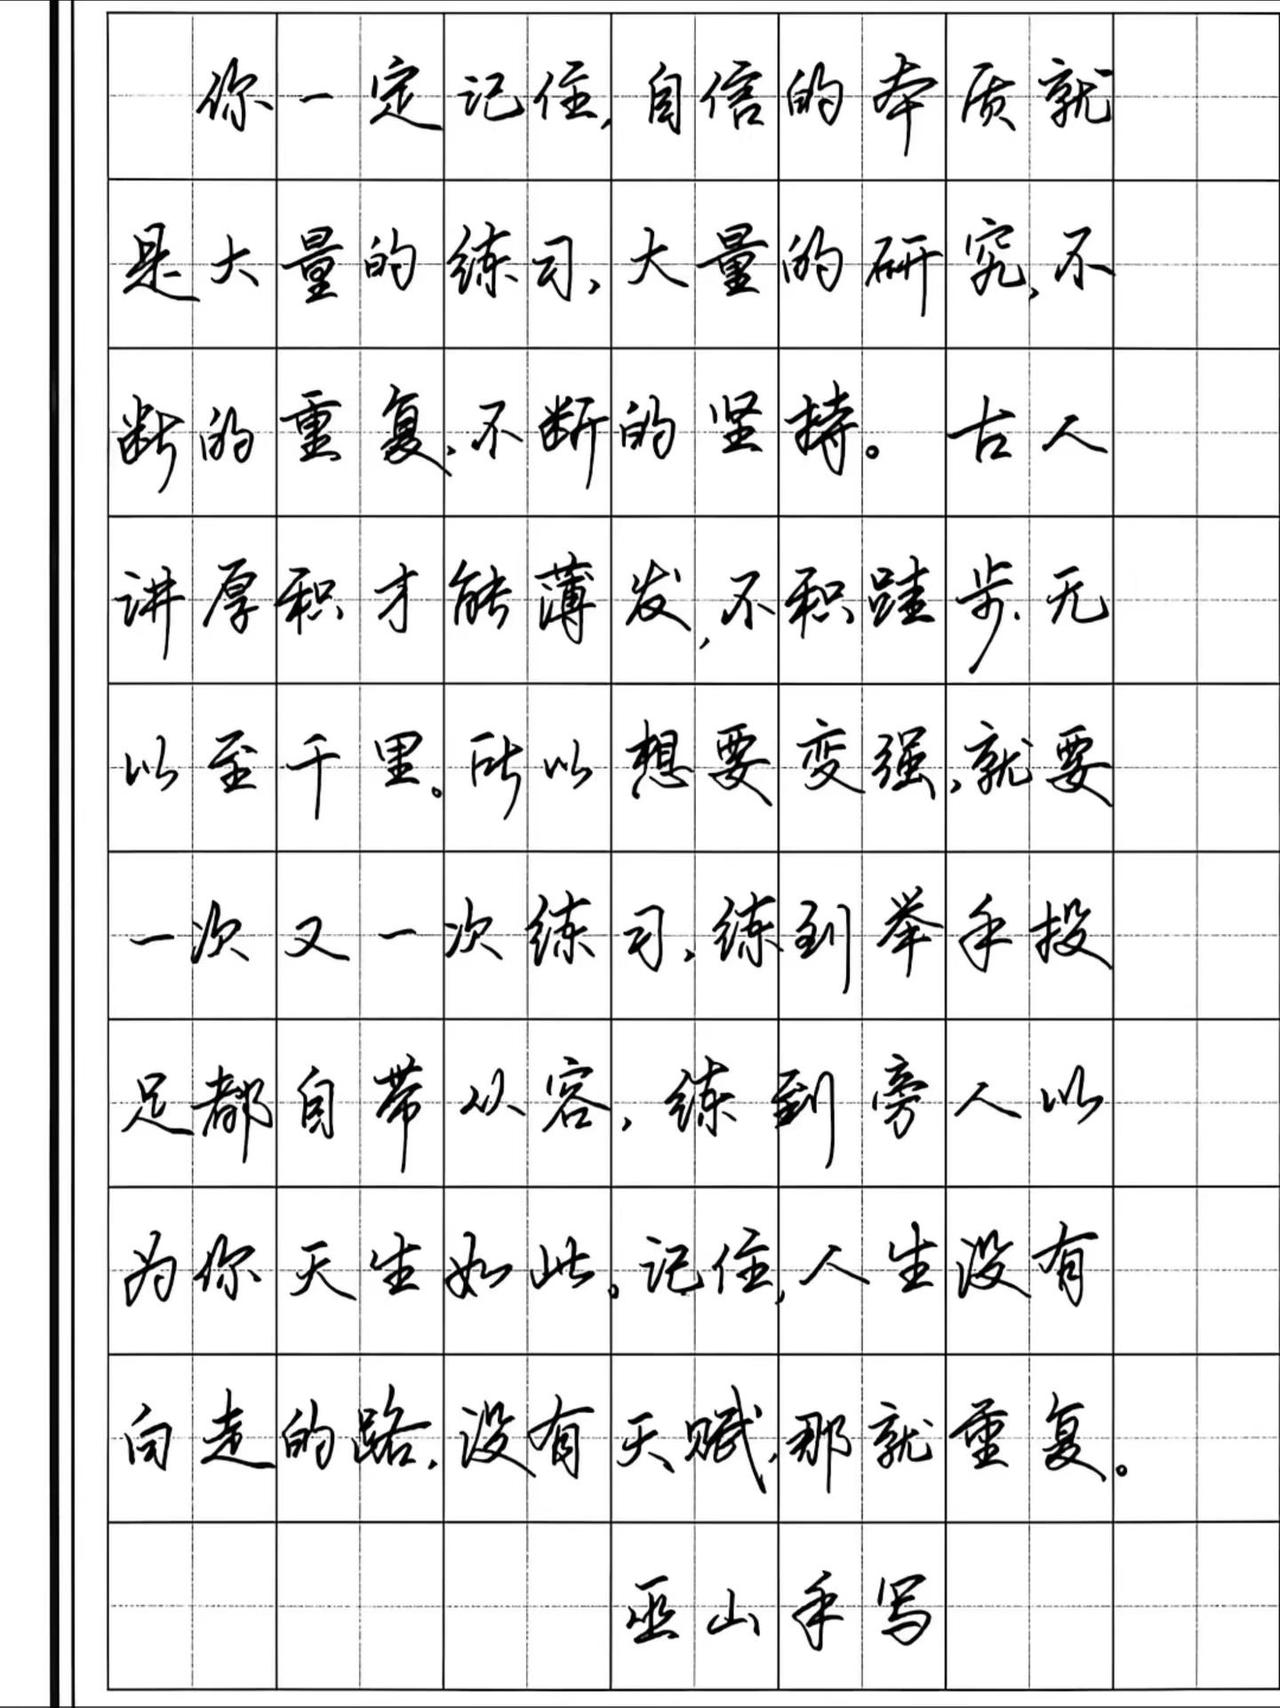 你一定记住,自信的本质就
是大量的练习,大量的研究,不
断的重复,不断的坚持。古人
讲厚积才能薄发,不积跬步,无
以至千里。所以想要变强,就要
一次又一次练习,练到举手投
足都自带从容,练到旁人以
为你天生如此。记住,人生没有
白走的路,没有天赋,那就重复。
巫山手写